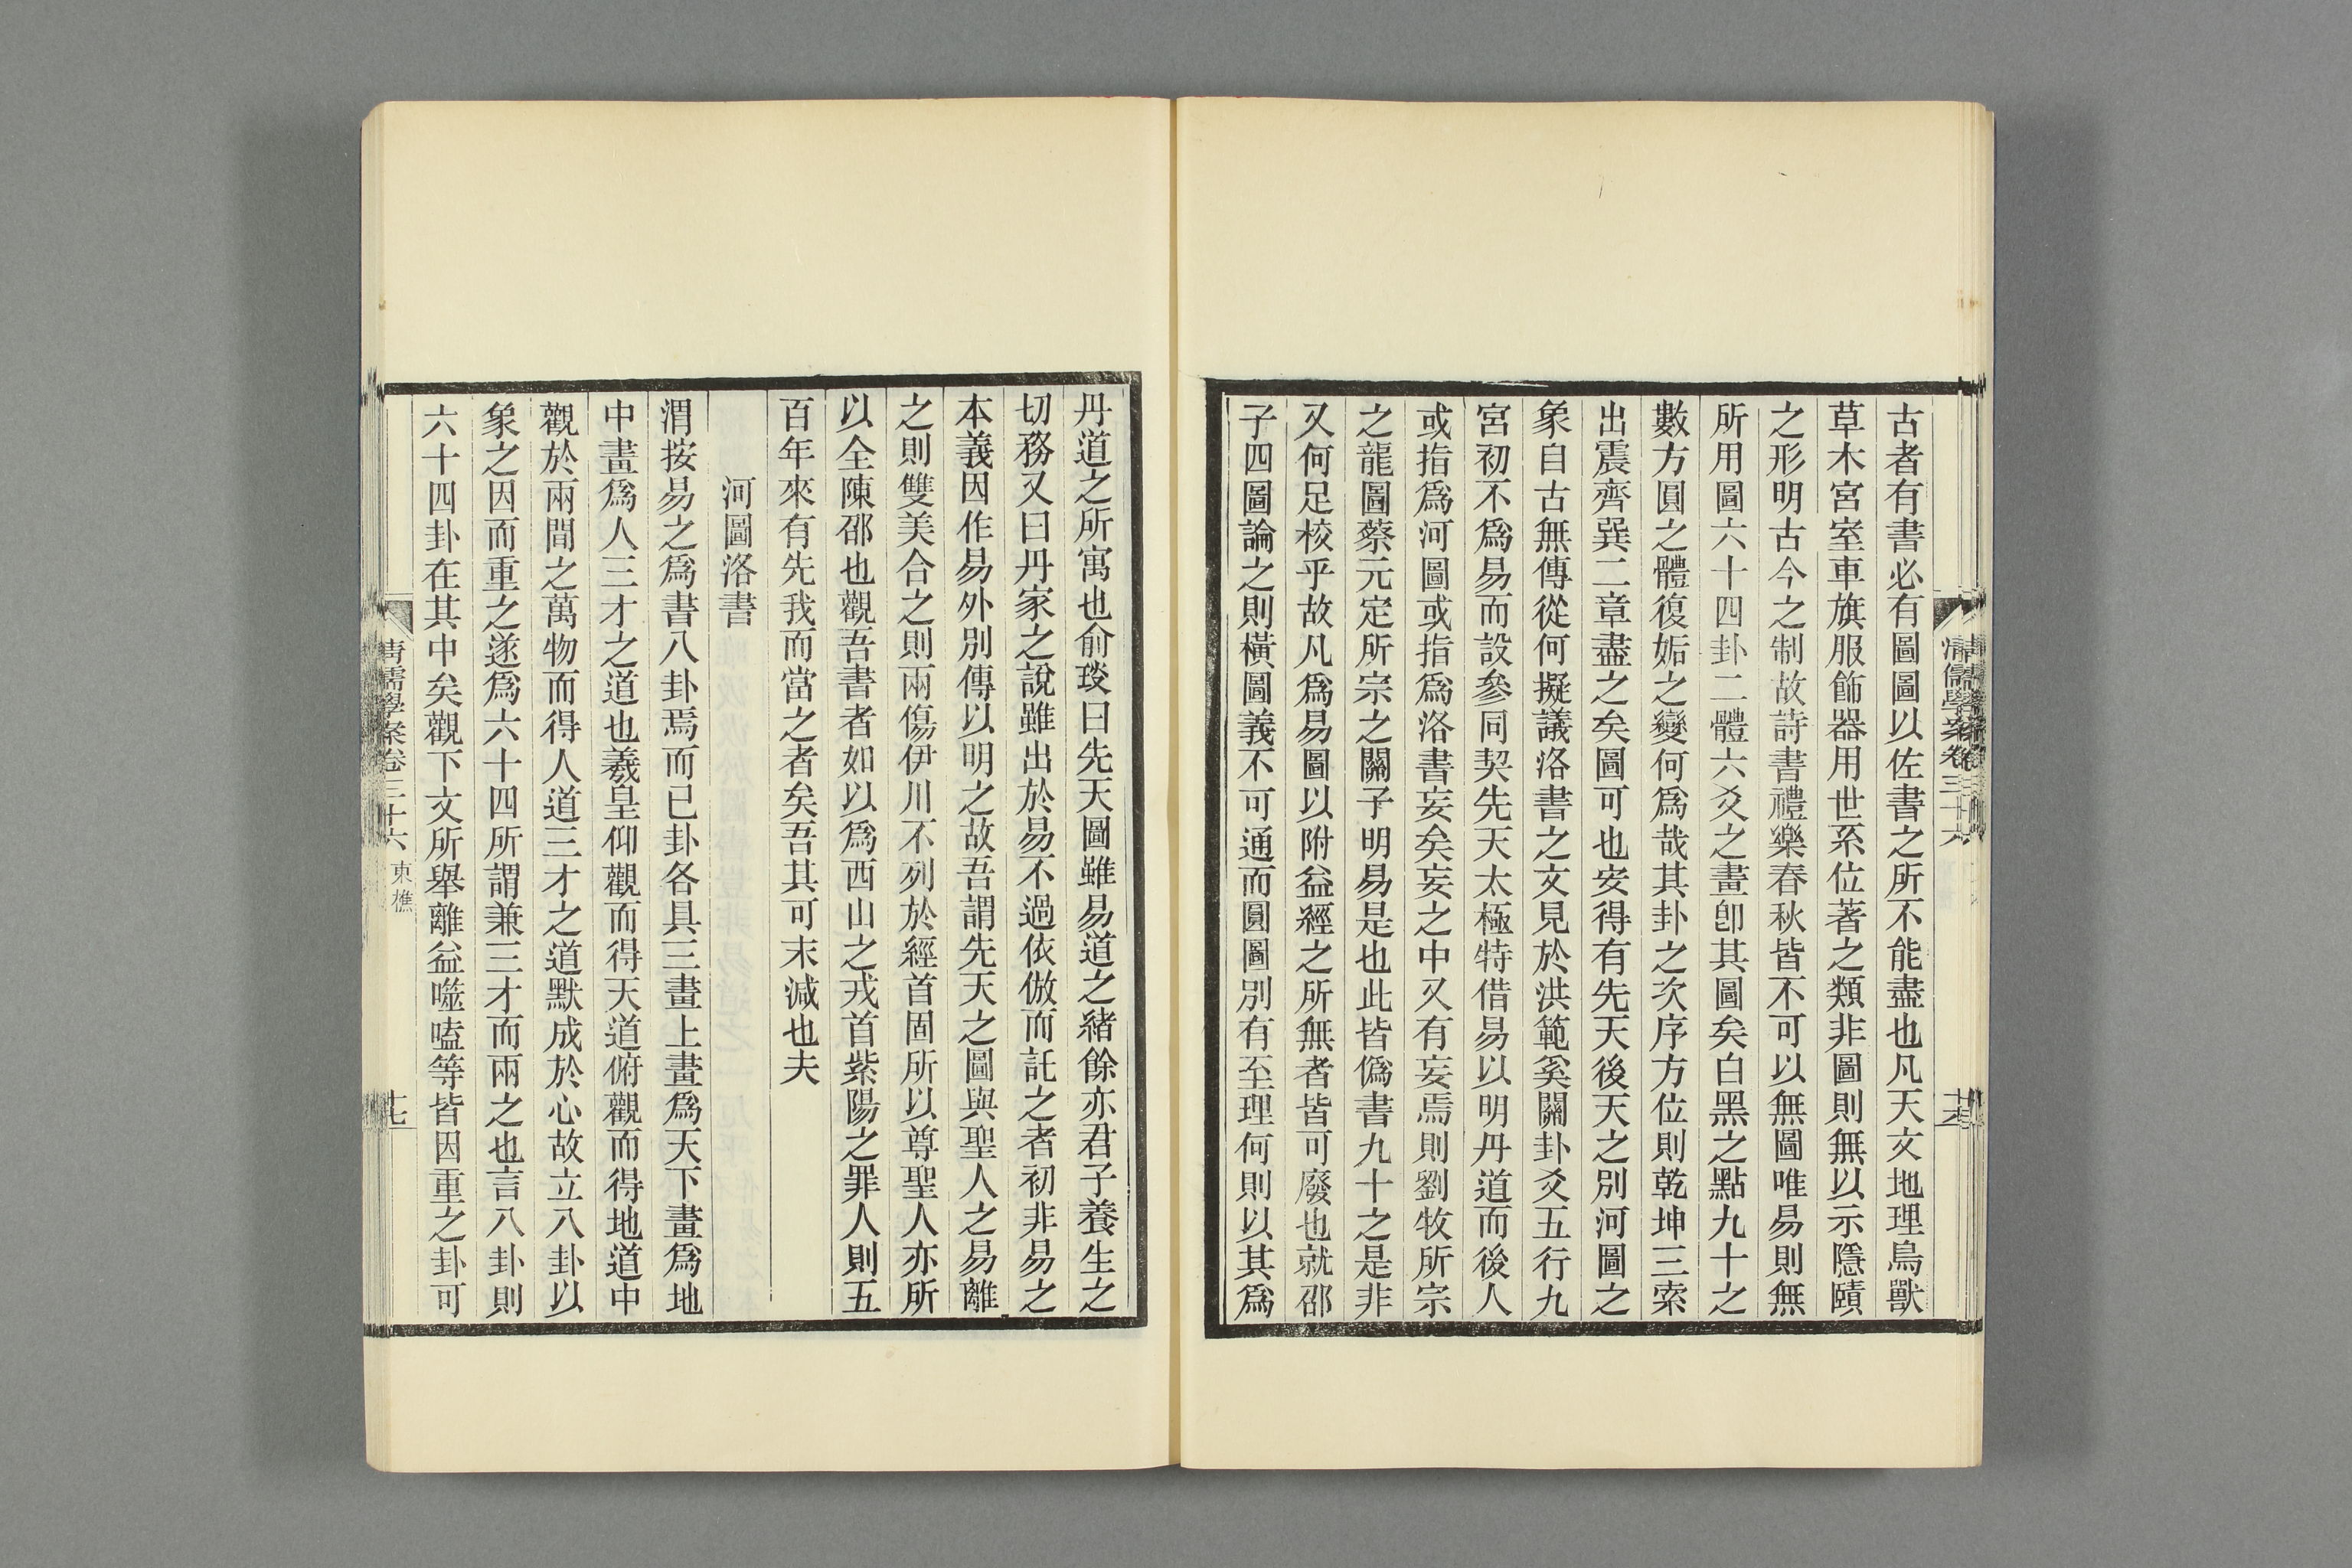 古者有書必有圖圖以佐書之所不能盡也凡天文地理鳥獸
草木宮室車旗服飾器用世系位著之類非圖則無以示隱賾
之形明古今之制故詩書禮樂春秋皆不可以無圖唯易則無
所用圖六十四卦二體六爻之畫卽其圖矣白黑之點九十之
數方圓之體復姤之變何爲哉其卦之次序方位則乾坤三索
出震齊巽二章盡之矣圖可也安得有先天後天之別河圖之
象自古無傳從何擬議洛書之文見於洪範奚關卦爻五行九
宮初不爲易而設參同契先天太極特借易以明丹道而後人
或指爲河圖或指爲洛書妄矣妄之中又有妄焉則劉牧所宗
之龍圖蔡元定所宗之關子明易是也此皆僞書九十之是非
又何足校乎故凡爲易圖以附益經之所無者皆可廢也就邵
子四圖論之則橫圖義不可通而圓圖別有至理何則以其爲
丹道之所寓也俞琰曰先天圖雖易道之緒餘亦君子養生之
切務又曰丹家之說雖出於易不過依倣而託之者初非易之
本義因作易外別傳以明之故吾謂先天之圖與聖人之易離
之則雙美合之則兩傷伊川不列於經首固所以尊聖人亦所
以全陳邵也觀吾書者如以爲西山之戎首紫陽之罪人則五
百年來有先我而當之者矣吾其可末減也夫
河圖洛書
渭按易之爲書八卦焉而已卦各具三畫上畫爲天下畫爲地
中畫爲人三才之道也羲皇仰觀而得天道俯觀而得地道中
觀於兩間之萬物而得人道三才之道默成於心故立八卦以
象之因而重之遂爲六十四所謂兼三才而兩之也言八卦則
六十四卦在其中矣觀下文所舉離益噬嗑等皆因重之卦可
清儒學案卷三十六 東樵
十七